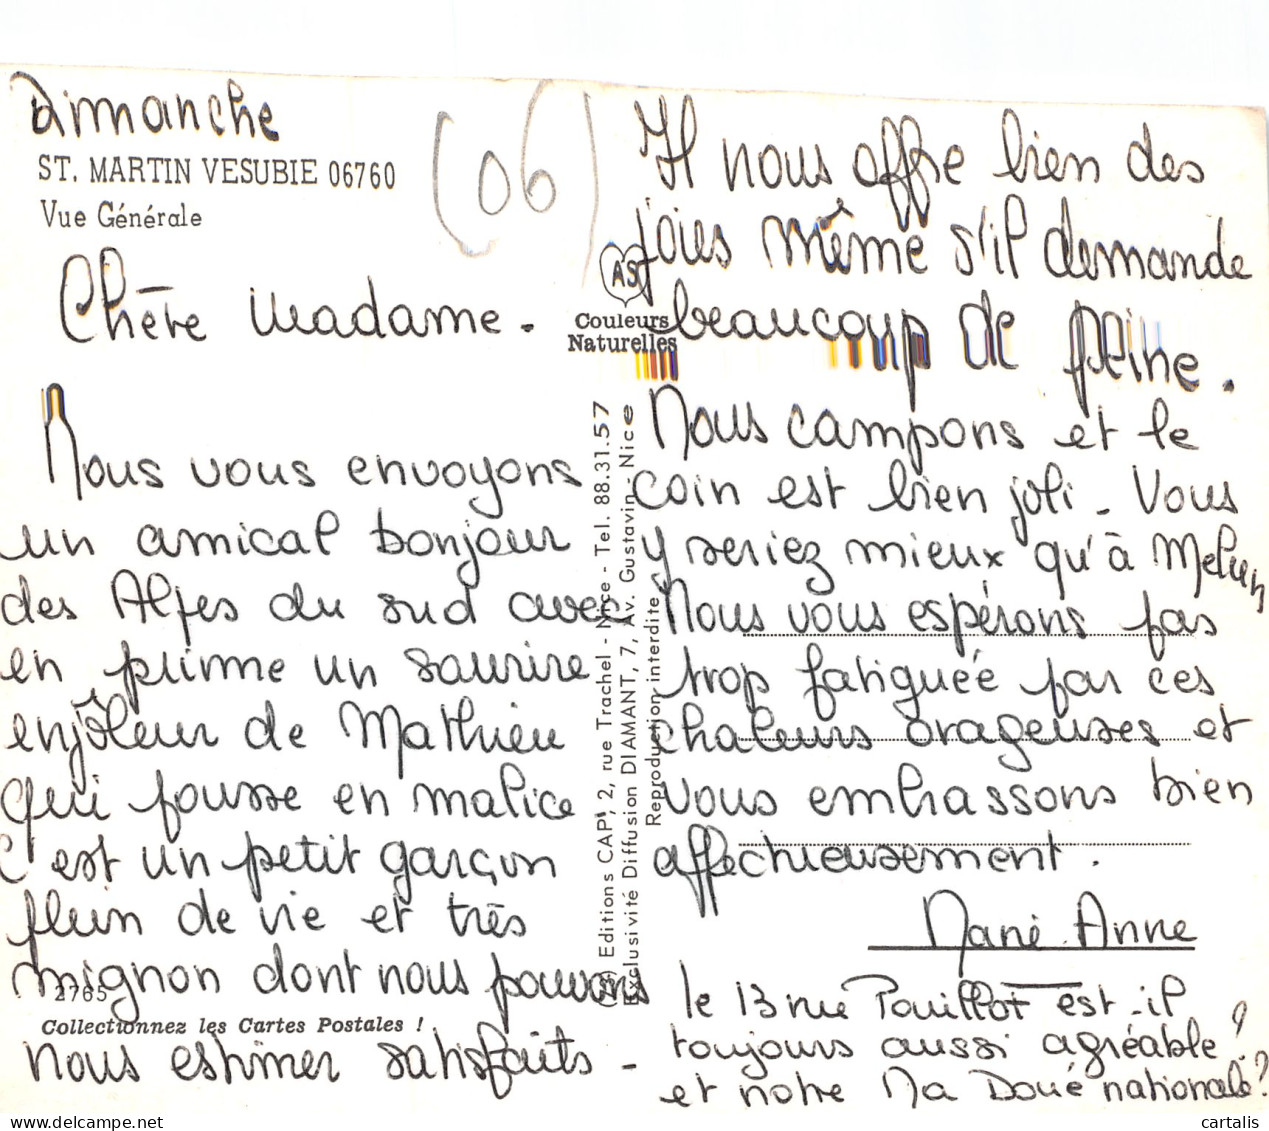 Dimanche
ST. MARTIN VESUBIE 06760
Vue Générale
(06)
Chère Madame.
Nous vous envoyons
un amical bonjour
des Alpes du sud avec
en prime un sourire
enjôleur de Mathieu
qui pousse en malice
C'est un petit garçon
plein de vie et très
mignon dont nous pouvons
2765
Collectionnez les Cartes Postales !
nous estimer satisfaits -
AS
Couleurs
Naturelles
Editions CAP, 2, rue Trachel - Nice - Tel. 88.31.57
Exclusivité Diffusion DIAMANT, 7, Av. Gustavin - Nice
Reproduction interdite
Il nous offre bien des
joies même s'il demande
beaucoup de peine.
Nous campons et le
coin est bien joli - Vous
y seriez mieux qu'à Melun
Nous vous espérons pas
trop fatiguée par ces
chaleurs orageuses et
vous embrassons bien
affectueusement.
Mané. Anne
le 13 rue Pouillot est-il
toujours aussi agréable?
et notre Ma Doué nationale?
cartalis